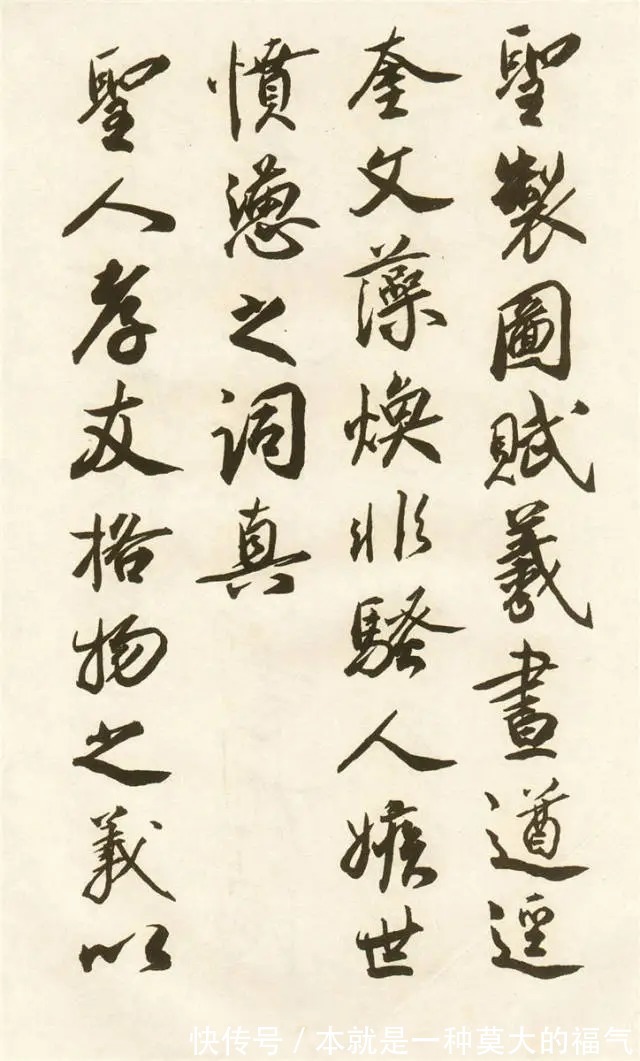 聖製圖賦羲畫遒逕
奎文藻煥非騷人嫉世
憤懣之詞真
聖人孝友格物之義以
快传号 / 本就是一种莫大的福气